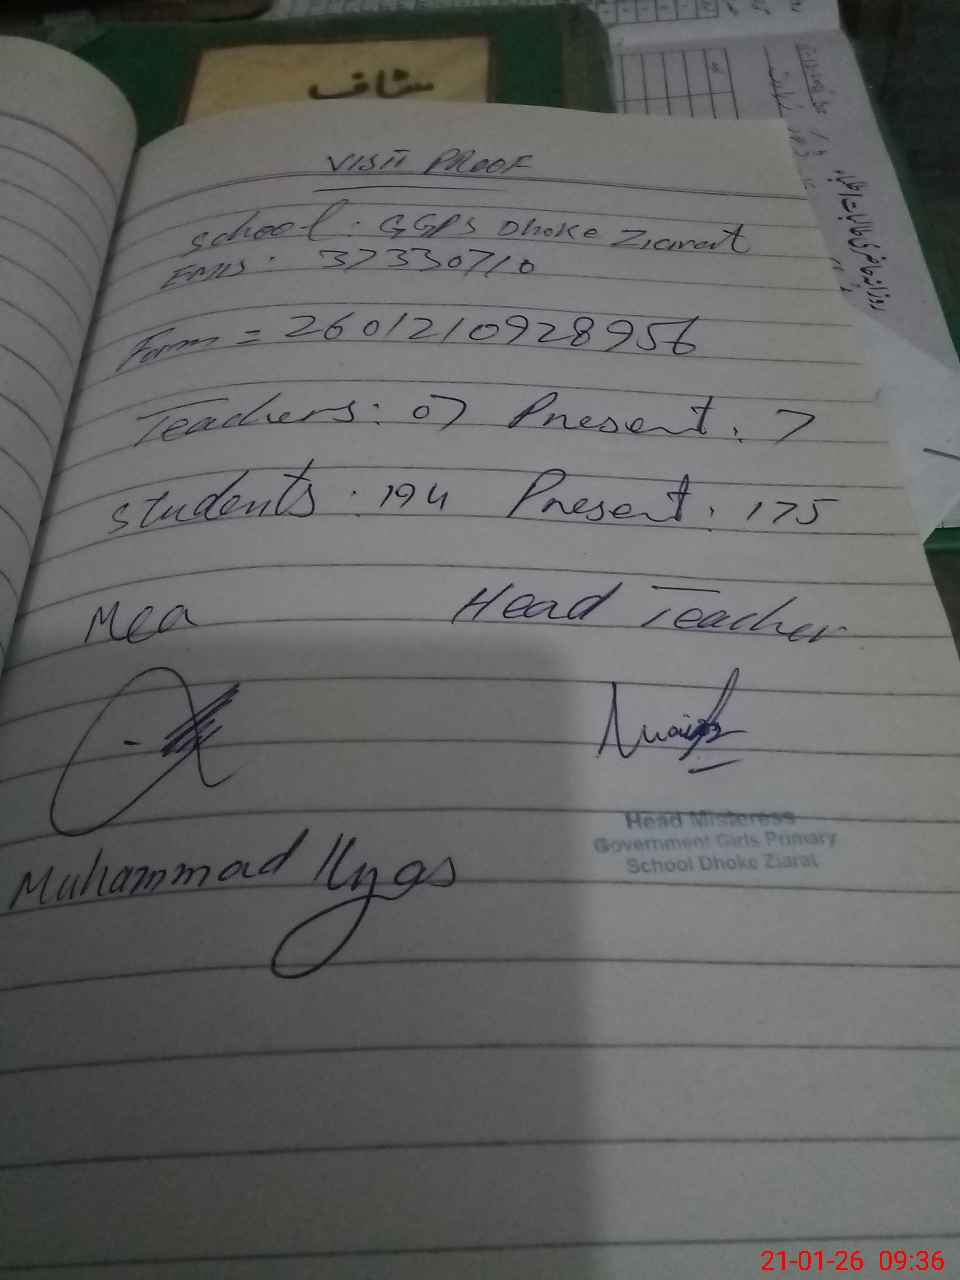 سٹاف
VISIT PROOF
School: GGPS Dhoke Ziarat
EMIS: 37330710
Form = 2601210928956
Teachers: 07 Present: 7
Students: 194 Present: 175
Mea Head Teacher
Muhammad Ilyas
Head Misteress
Government Girls Primary
School Dhoke Ziarat
روزانہ حاضری طالبات/طلباء
21-01-26 09:36